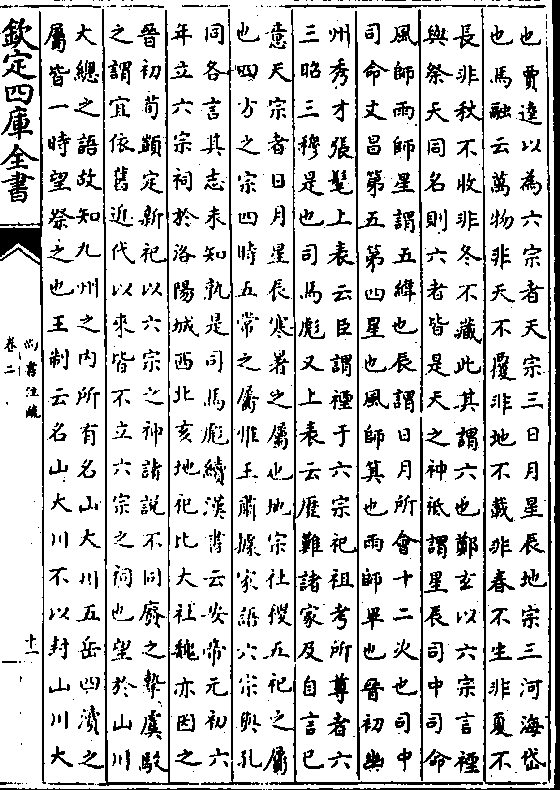 也賈逵以為六宗者天宗三日月星辰地宗三河海岱
也馬融云萬物非天不覆非地不載非春不生非夏不
長非秋不收非冬不藏此其謂六也鄭玄以六宗言禋
與祭天同名則六者皆是天之神祇謂星辰司中司命
風師雨師星謂五緯也辰謂日月所會十二次也司中
司命文昌第五第四星也風師箕也雨師畢也晉初幽
州秀才張髦上表云臣謂禋于六宗祀祖考所尊者六
三昭三穆是也司馬彪又上表云歷難諸家及自言己
意天宗者日月星辰寒暑之屬也地宗社稷五祀之屬
也四方之宗四時五常之屬惟王肅據家語六宗與孔
同各言其志未知孰是司馬彪續漢書云安帝元初六
年立六宗祠於洛陽城西北亥地祀比大社魏亦因之
晉初荀顗定新祀以六宗之神諸說不同廢之摯虞駮
之謂宜依舊近代以來皆不立六宗之祠也望於山川
大總之語故知九州之內所有名山大川五岳四瀆之
屬皆一時望祭之也王制云名山大川不以封山川大
欽定四庫全書
尚書注疏
卷二
十一